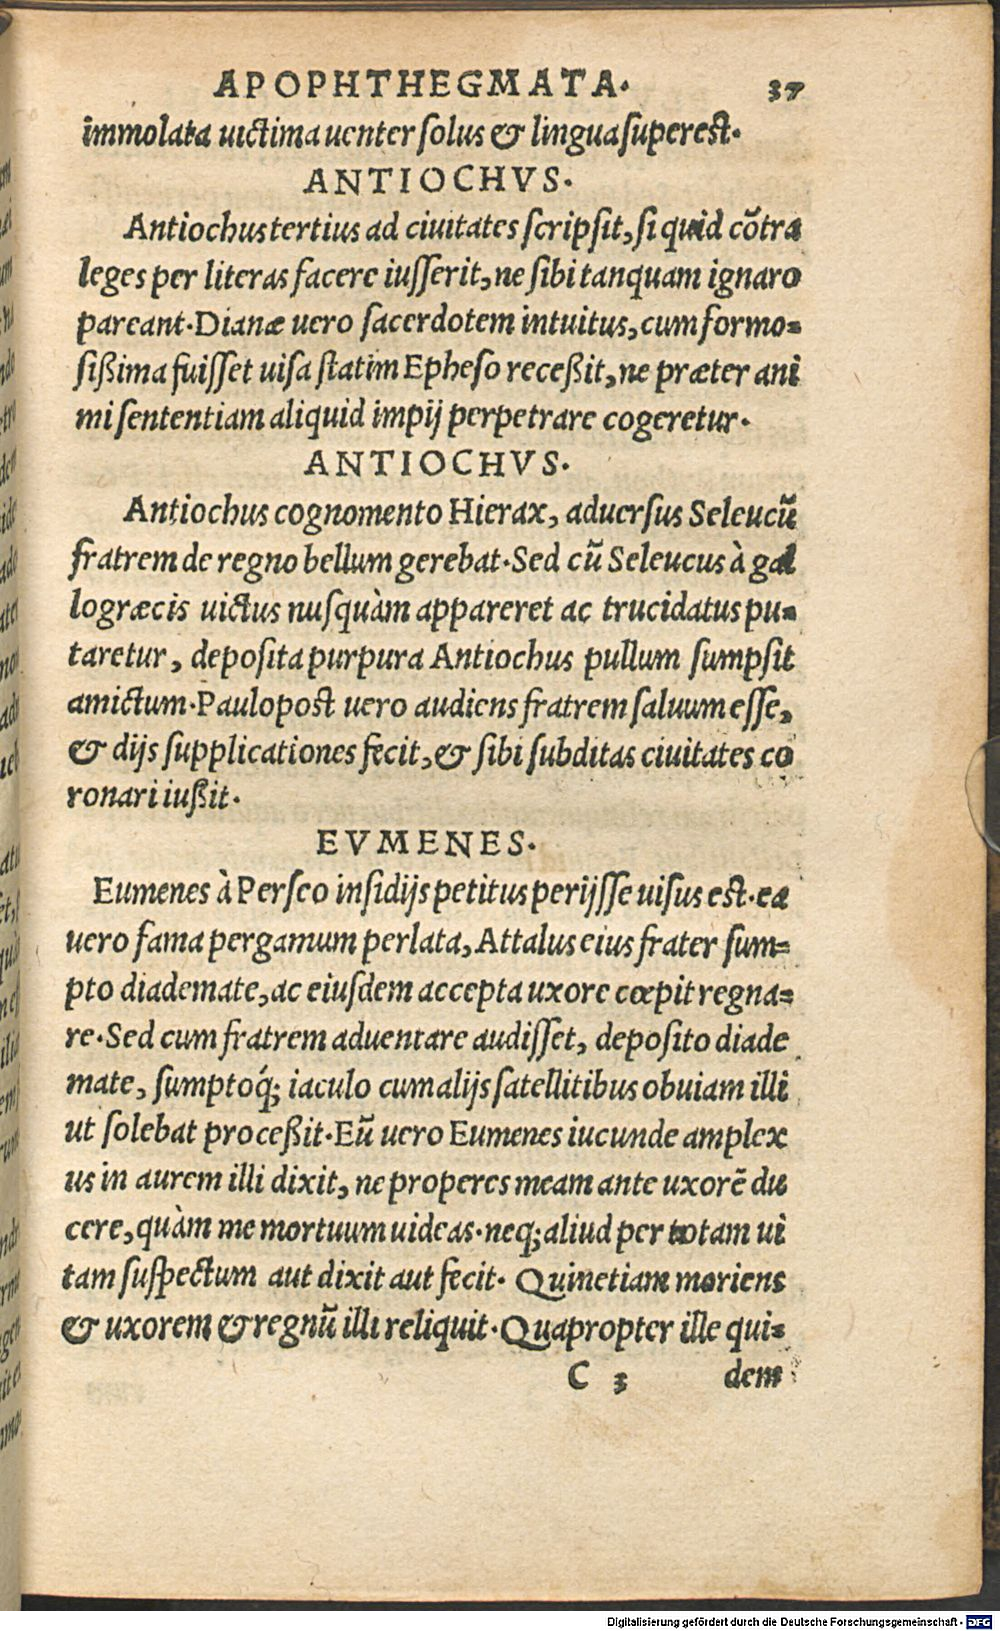 APOPHTHEGMATA. 37
immolata uictima uenter solus & lingua superest.
ANTIOCHVS.
Antiochus tertius ad ciuitates scripsit, si quid cõtra
leges per literas facere iusserit, ne sibi tanquam ignaro
pareant. Dianæ uero sacerdotem intuitus, cum formo-
sißima fuisset uisa statim Epheso receßit, ne præter ani
mi sententiam aliquid impij perpetrare cogeretur.
ANTIOCHVS.
Antiochus cognomento Hierax, aduersus Seleucũ
fratrem de regno bellum gerebat. Sed cũ Seleucus à gal
logræcis uictus nusquàm appareret ac trucidatus pu-
taretur, deposita purpura Antiochus pullum sumpsit
amictum. Paulopost uero audiens fratrem saluum esse,
& dijs supplicationes fecit, & sibi subditas ciuitates co
ronari iußit.
EVMENES.
Eumenes à Perseo insidijs petitus perijsse uisus est. ea
uero fama pergamum perlata, Attalus eius frater sum-
pto diademate, ac eiusdem accepta uxore cœpit regna-
re. Sed cum fratrem aduentare audisset, deposito diade
mate, sumptoq́; iaculo cum alijs satellitibus obuiam illi
ut solebat proceßit. Eũ uero Eumenes iucunde amplex
us in aurem illi dixit, ne properes meam ante uxorẽ du
cere, quàm me mortuum uideas. neq; aliud per totam ui
tam suspectum aut dixit aut fecit. Quinetiam moriens
& uxorem & regnũ illi reliquit. Quapropter ille qui-
C 3 dem
Digitalisierung gefördert durch die Deutsche Forschungsgemeinschaft - DFG